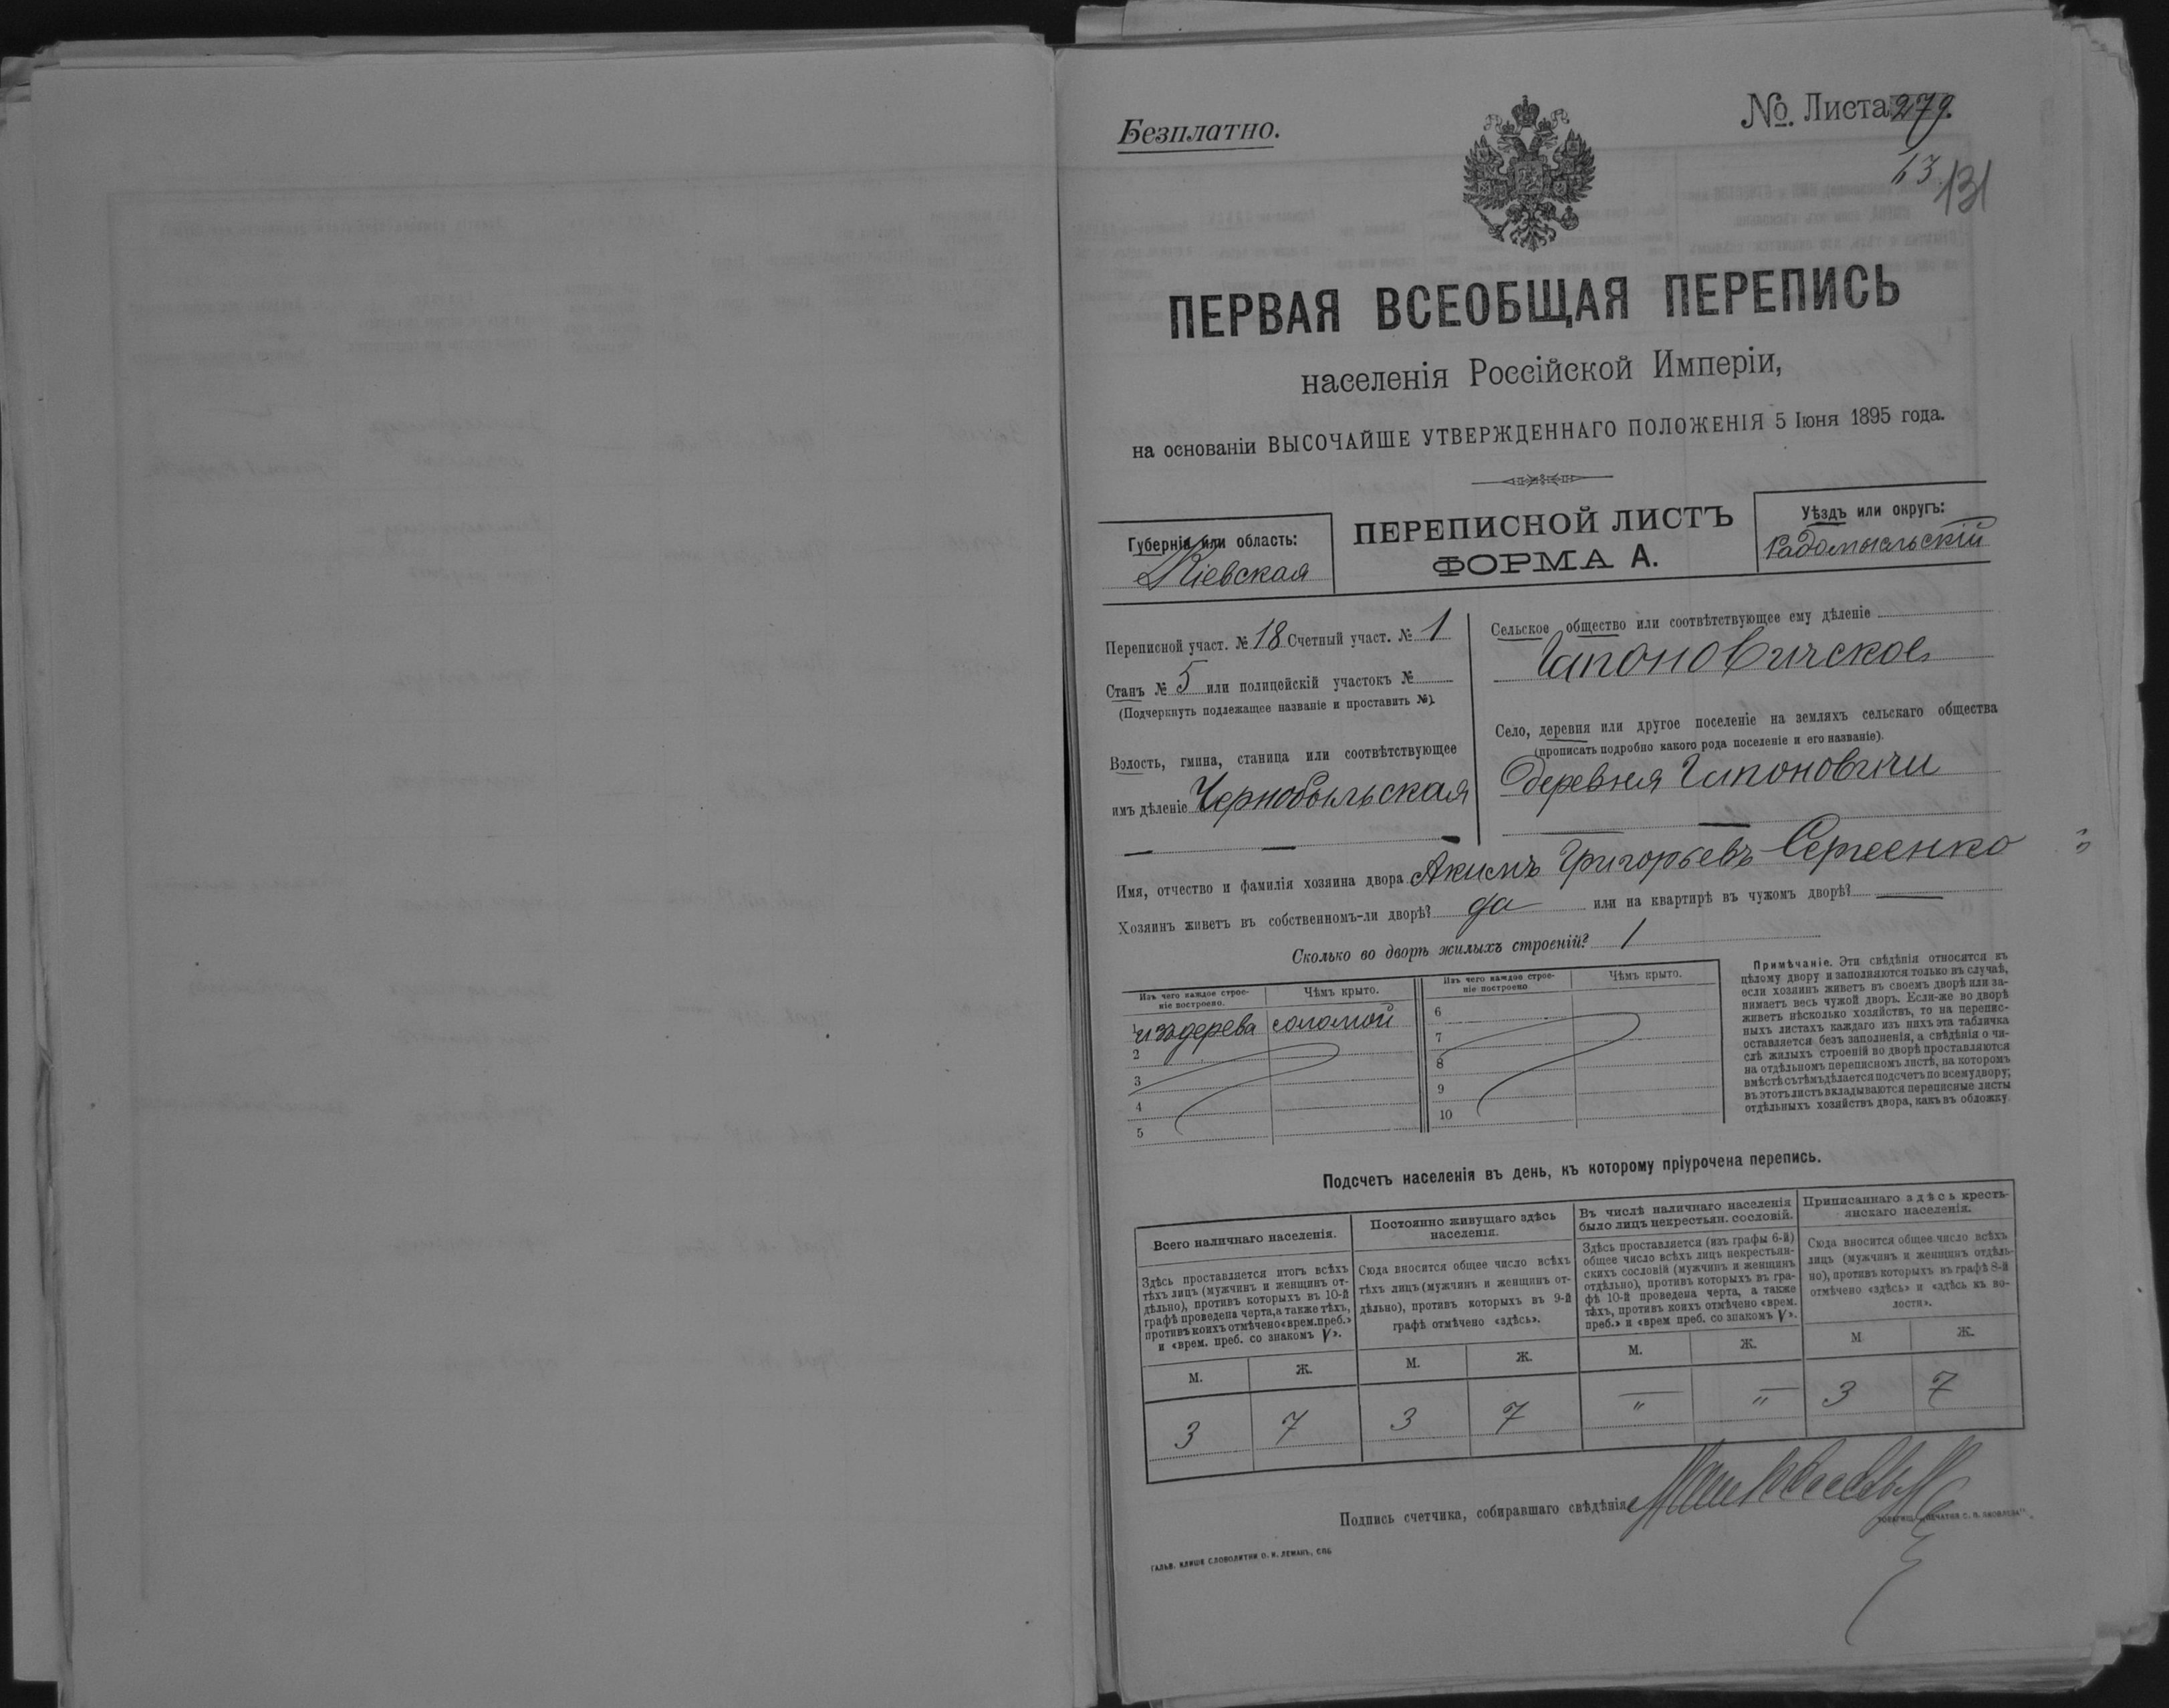 Безплатно.
№. Листа 279.
13
131
ПЕРВАЯ ВСЕОБЩАЯ ПЕРЕПИСЬ
населенія Россійской Имперіи,
на основаніи ВЫСОЧАЙШЕ УТВЕРЖДЕННАГО ПОЛОЖЕНІЯ 5 Іюня 1895 года.
Губернія или область:
Кіевская
ПЕРЕПИСНОЙ ЛИСТЪ
ФОРМА А.
Уѣздъ или округъ:
Радомысльскій
Переписной участ. № 18 Счетный участ. № 1
Станъ № 5 или полицейскій участокъ №
(Подчеркнуть подлежащее названіе и проставить №).
Волость, гмина, станица или соотвѣтствующее
имъ дѣленіе Чернобыльская
Сельское общество или соотвѣтствующее ему дѣленіе
Гапоновичское
Село, деревня или другое поселеніе на земляхъ сельскаго общества
(прописать подробно какого рода поселеніе и его названіе).
Деревня Гапоновичи
Имя, отчество и фамилія хозяина двора Акимъ Григорьевъ Сергеенко
Хозяинъ живетъ въ собственномъ-ли дворѣ? да или на квартирѣ въ чужомъ дворѣ? —
Сколько во дворѣ жилыхъ строеній? 1
Изъ чего каждое строе-
ніе построено.
Чѣмъ крыто.
1 изъ дерева соломой
2
3
4
5
Изъ чего каждое строе-
ніе построено
Чѣмъ крыто.
6
7
8
9
10
Примѣчаніе. Эти свѣдѣнія относятся къ
цѣлому двору и заполняются только въ случаѣ,
если хозяинъ живетъ въ своемъ дворѣ или за-
нимаетъ весь чужой дворъ. Если-же во дворѣ
живетъ нѣсколько хозяйствъ, то на перепис-
ныхъ листахъ каждаго изъ нихъ эта табличка
оставляется безъ заполненія, а свѣдѣнія о чи-
слѣ жилыхъ строеній во дворѣ проставляются
на отдѣльномъ переписномъ листѣ, на которомъ
вмѣстѣ съ тѣмъ дѣлается подсчетъ по всему двору;
въ этотъ листъ вкладываются переписные листы
отдѣльныхъ хозяйствъ двора, какъ въ обложку.
Подсчетъ населенія въ день, къ которому пріурочена перепись.
Всего наличнаго населенія.
Здѣсь проставляется итогъ всѣхъ
тѣхъ лицъ (мужчинъ и женщинъ от-
дѣльно), противъ которыхъ въ 10-й
графѣ проведена черта, а также тѣхъ,
противъ коихъ отмѣчено «врем. преб.»
и «врем. преб. со знакомъ V».
М. Ж.
3 7
Постоянно живущаго здѣсь
населенія.
Сюда вносится общее число всѣхъ
тѣхъ лицъ (мужчинъ и женщинъ от-
дѣльно), противъ которыхъ въ 9-й
графѣ отмѣчено «здѣсь».
М. Ж.
3 7
Въ числѣ наличнаго населенія
было лицъ некрестьян. сословій.
Здѣсь проставляется (изъ графы 6-й)
общее число всѣхъ лицъ некрестьян-
скихъ сословій (мужчинъ и женщинъ
отдѣльно), противъ которыхъ въ гра-
фѣ 10-й проведена черта, а также
тѣхъ, противъ коихъ отмѣчено «врем.
преб.» и «врем преб. со знакомъ V».
М. Ж.
" "
Приписаннаго здѣсь кресть-
янскаго населенія.
Сюда вносится общее число всѣхъ
лицъ (мужчинъ и женщинъ отдѣль-
но), противъ которыхъ въ графѣ 8-й
отмѣчено «здѣсь» и «здѣсь къ во-
лости».
М Ж.
3 7
Подпись счетчика, собиравшаго свѣдѣнія
ГАЛЬВ. КЛИШЕ СЛОВОЛИТНИ О. И. ЛЕМАНЪ, СПБ.
ПЕЧАТНЯ С. П. ЯКОВЛЕВА